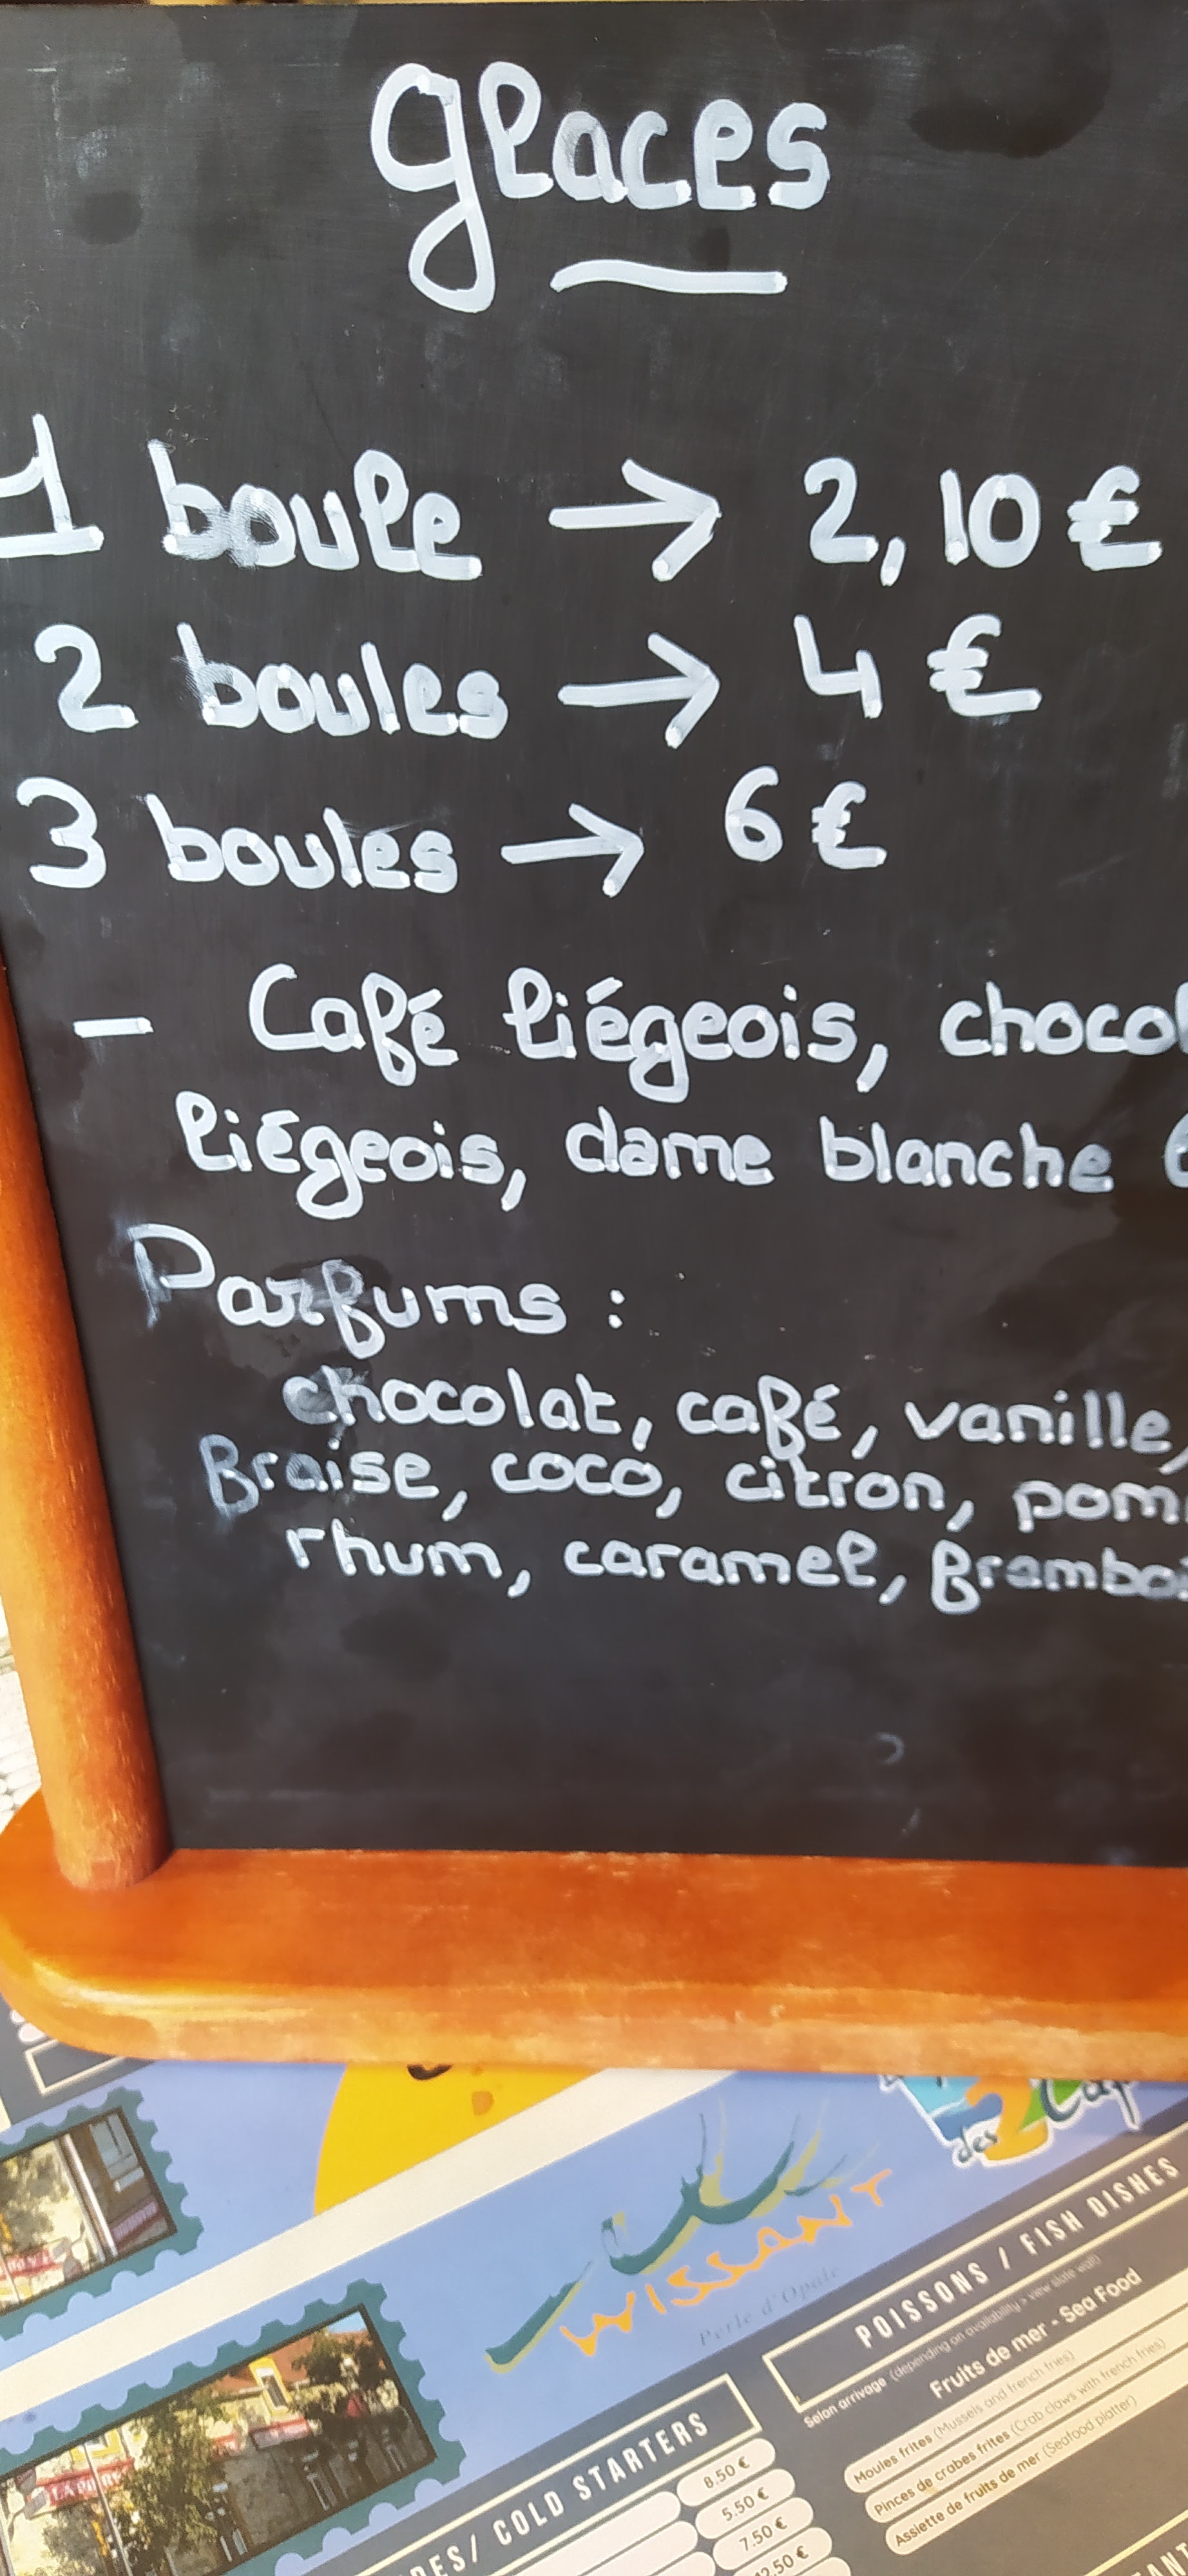 glaces
1 boule → 2,10 €
2 boules → 4 €
3 boules → 6 €
- Café liégeois, chocol
liégeois, dame blanche
Parfums :
chocolat, café, vanille,
Fraise, coco, citron, pom
rhum, caramel, Framboi
des Cap
WISSANT
Perle d'Opale
POISSONS / FISH DISHES
Selon arrivage (depending on availability > view slate wall)
Fruits de mer - Sea Food
Moules frites (Mussels and french fries)
Pinces de crabes frites (Crab claws with french fries)
Assiette de fruits de mer (Seafood platter)
DES/ COLD STARTERS
8.50 €
5.50 €
7.50 €
12.50 €